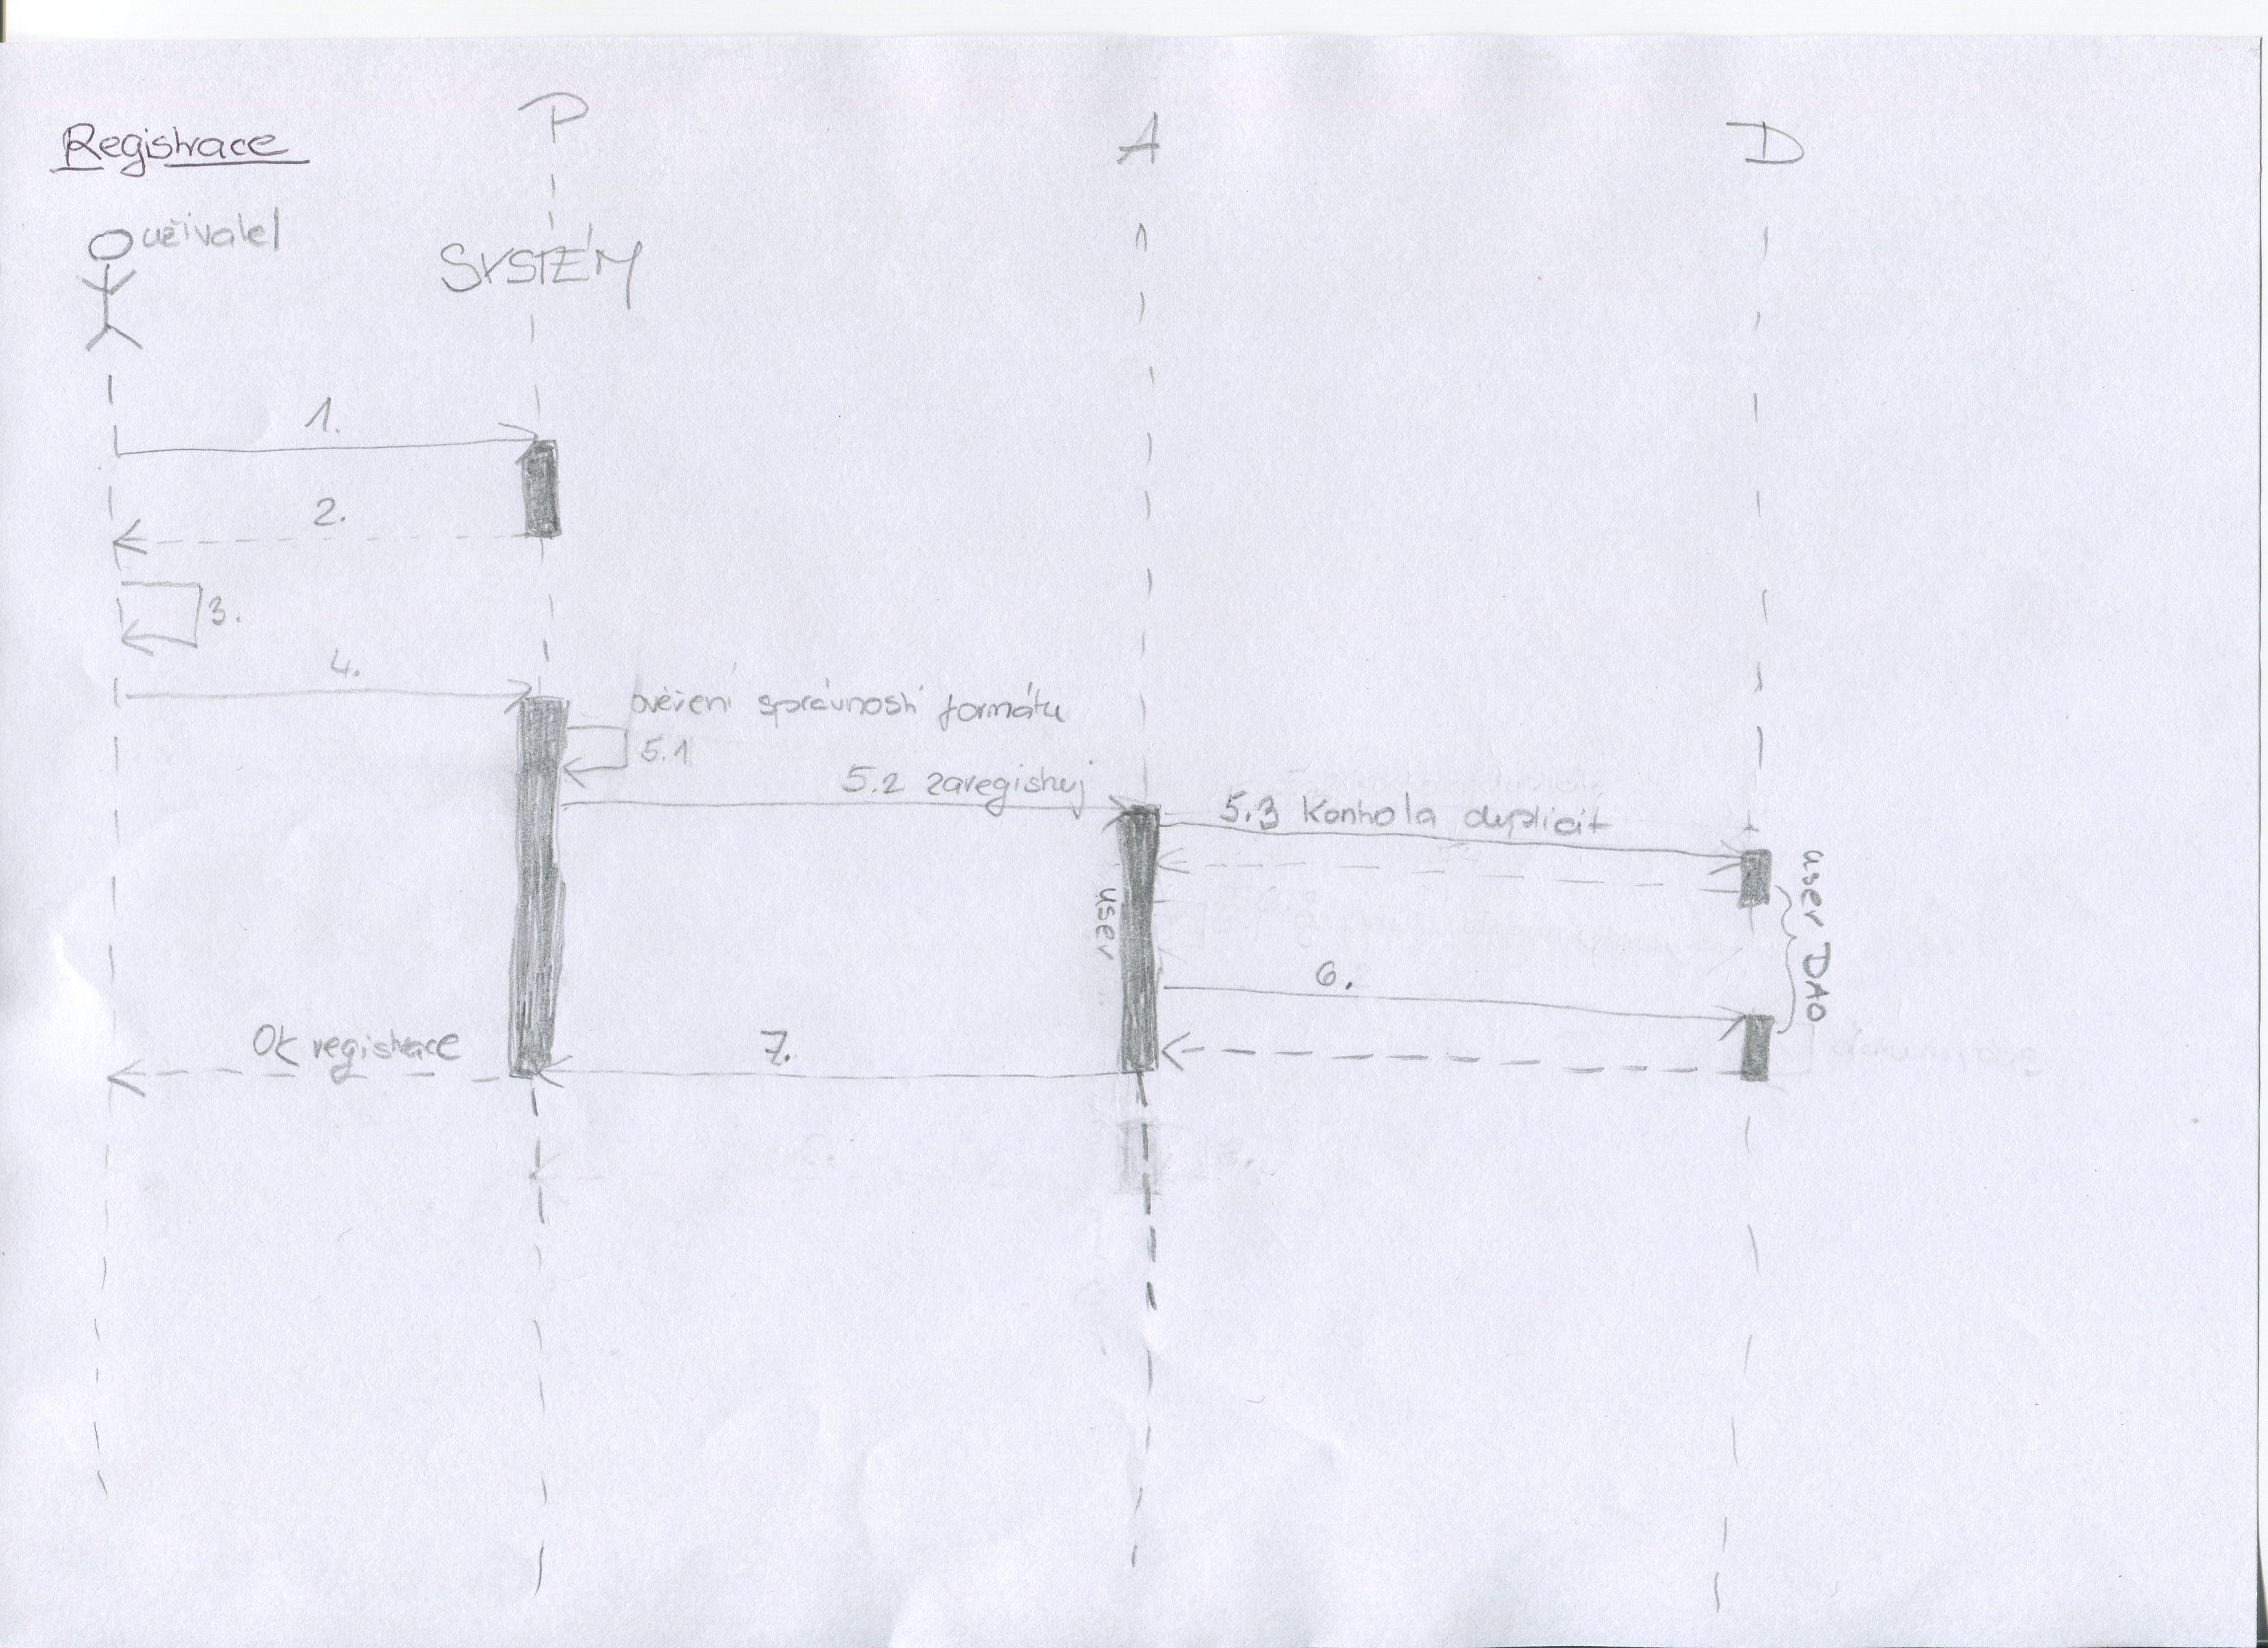 Registrace
P
A
D
uživatel
SYSTÉM
1.
2.
3.
4.
ověření správnosti formátu
5.1
5.2 zaregistruj
5.3 Kontrola duplicit
user
user DAO
6.
7.
Ok registrace